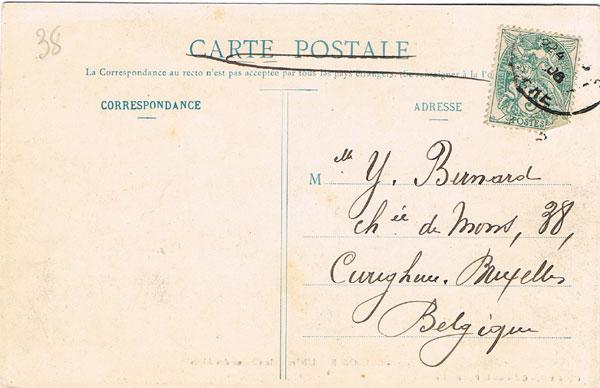 38
CARTE POSTALE
La Correspondance au recto n'est pas acceptée par tous les pays étrangers. (Se renseigner à la Po
CORRESPONDANCE
ADRESSE
POSTES
Mlle Y. Bernard
chée de Mons, 38,
Cureghem. Bruxelles
Belgique